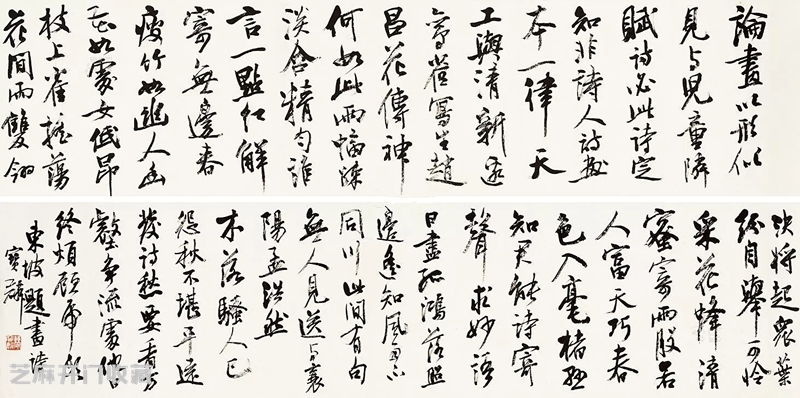 論畫以形似
見与兒童隣
賦詩必此詩定
知非詩人詩畫
本一律天
工與清新邊
鸞雀寫生趙
昌花傳神
何如此兩幅疎
淡含精勻誰
言一點紅解
寄無邊春
瘦竹如幽人幽
花如處女低昂
枝上雀摇蕩
花間雨雙翎
決將起衆葉
紛自舉可怜
采花蜂清
蜜寄兩股若
人富天巧春
色入毫楮懸
知君能詩寄
聲求妙語
目盡孤鴻落照
邊遙知風雨不
同川此間有句
無人見送与襄
陽孟浩然
木落騷人已
怨秋不堪平遠
發詩愁要看萬
壑爭流處他
終煩顧虎頭
東坡題畫詩
寶麟
芝麻开门收藏